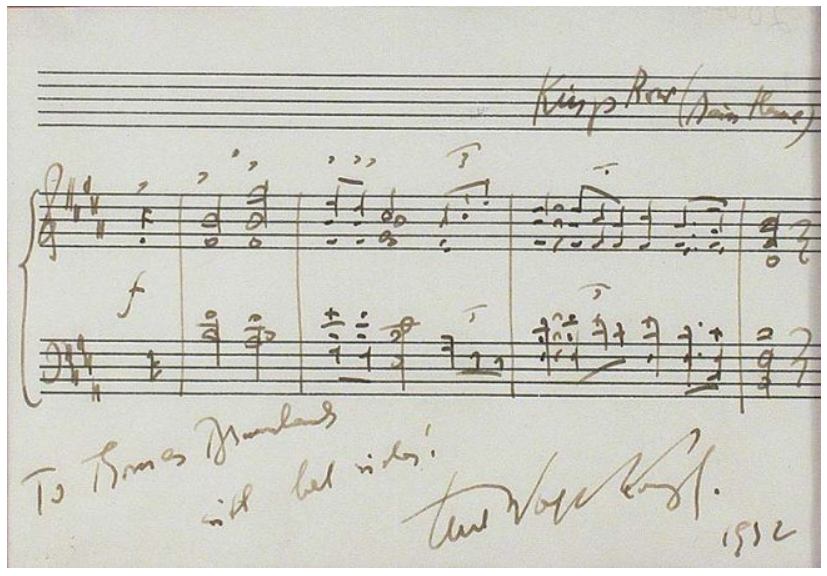 Kings Row (Main Theme)
3
f
3
To Thomas
with best wishes!
Erich Wolfgang Korngold.
1952